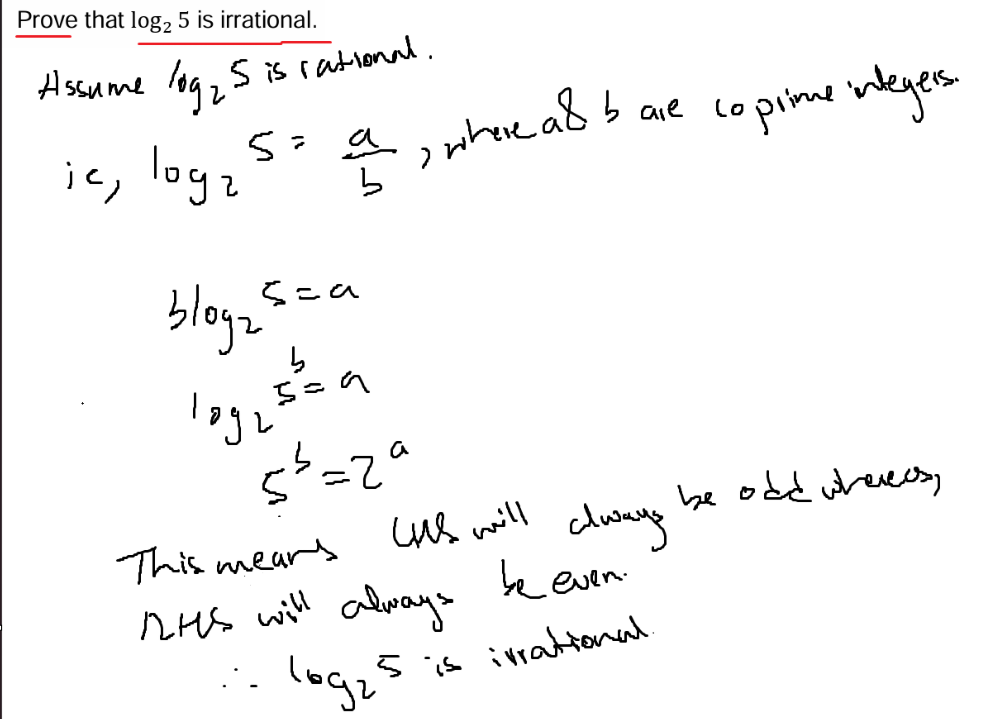 Prove that log₂ 5 is irrational.
Assume log₂ 5 is rational.
ie, log₂ 5 = a/b, where a & b are coprime integers.
b log₂ 5 = a
log₂ 5ᵇ = a
5ᵇ = 2ᵃ
This means LHS will always be odd whereas,
RHS will always be even.
∴ log₂ 5 is irrational.